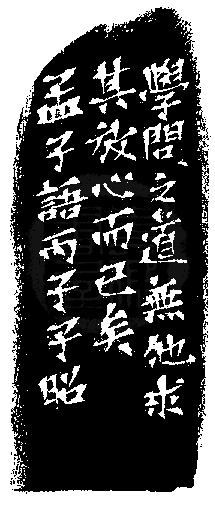 學問之道無他求
其放心而已矣
孟子語丙子子昭